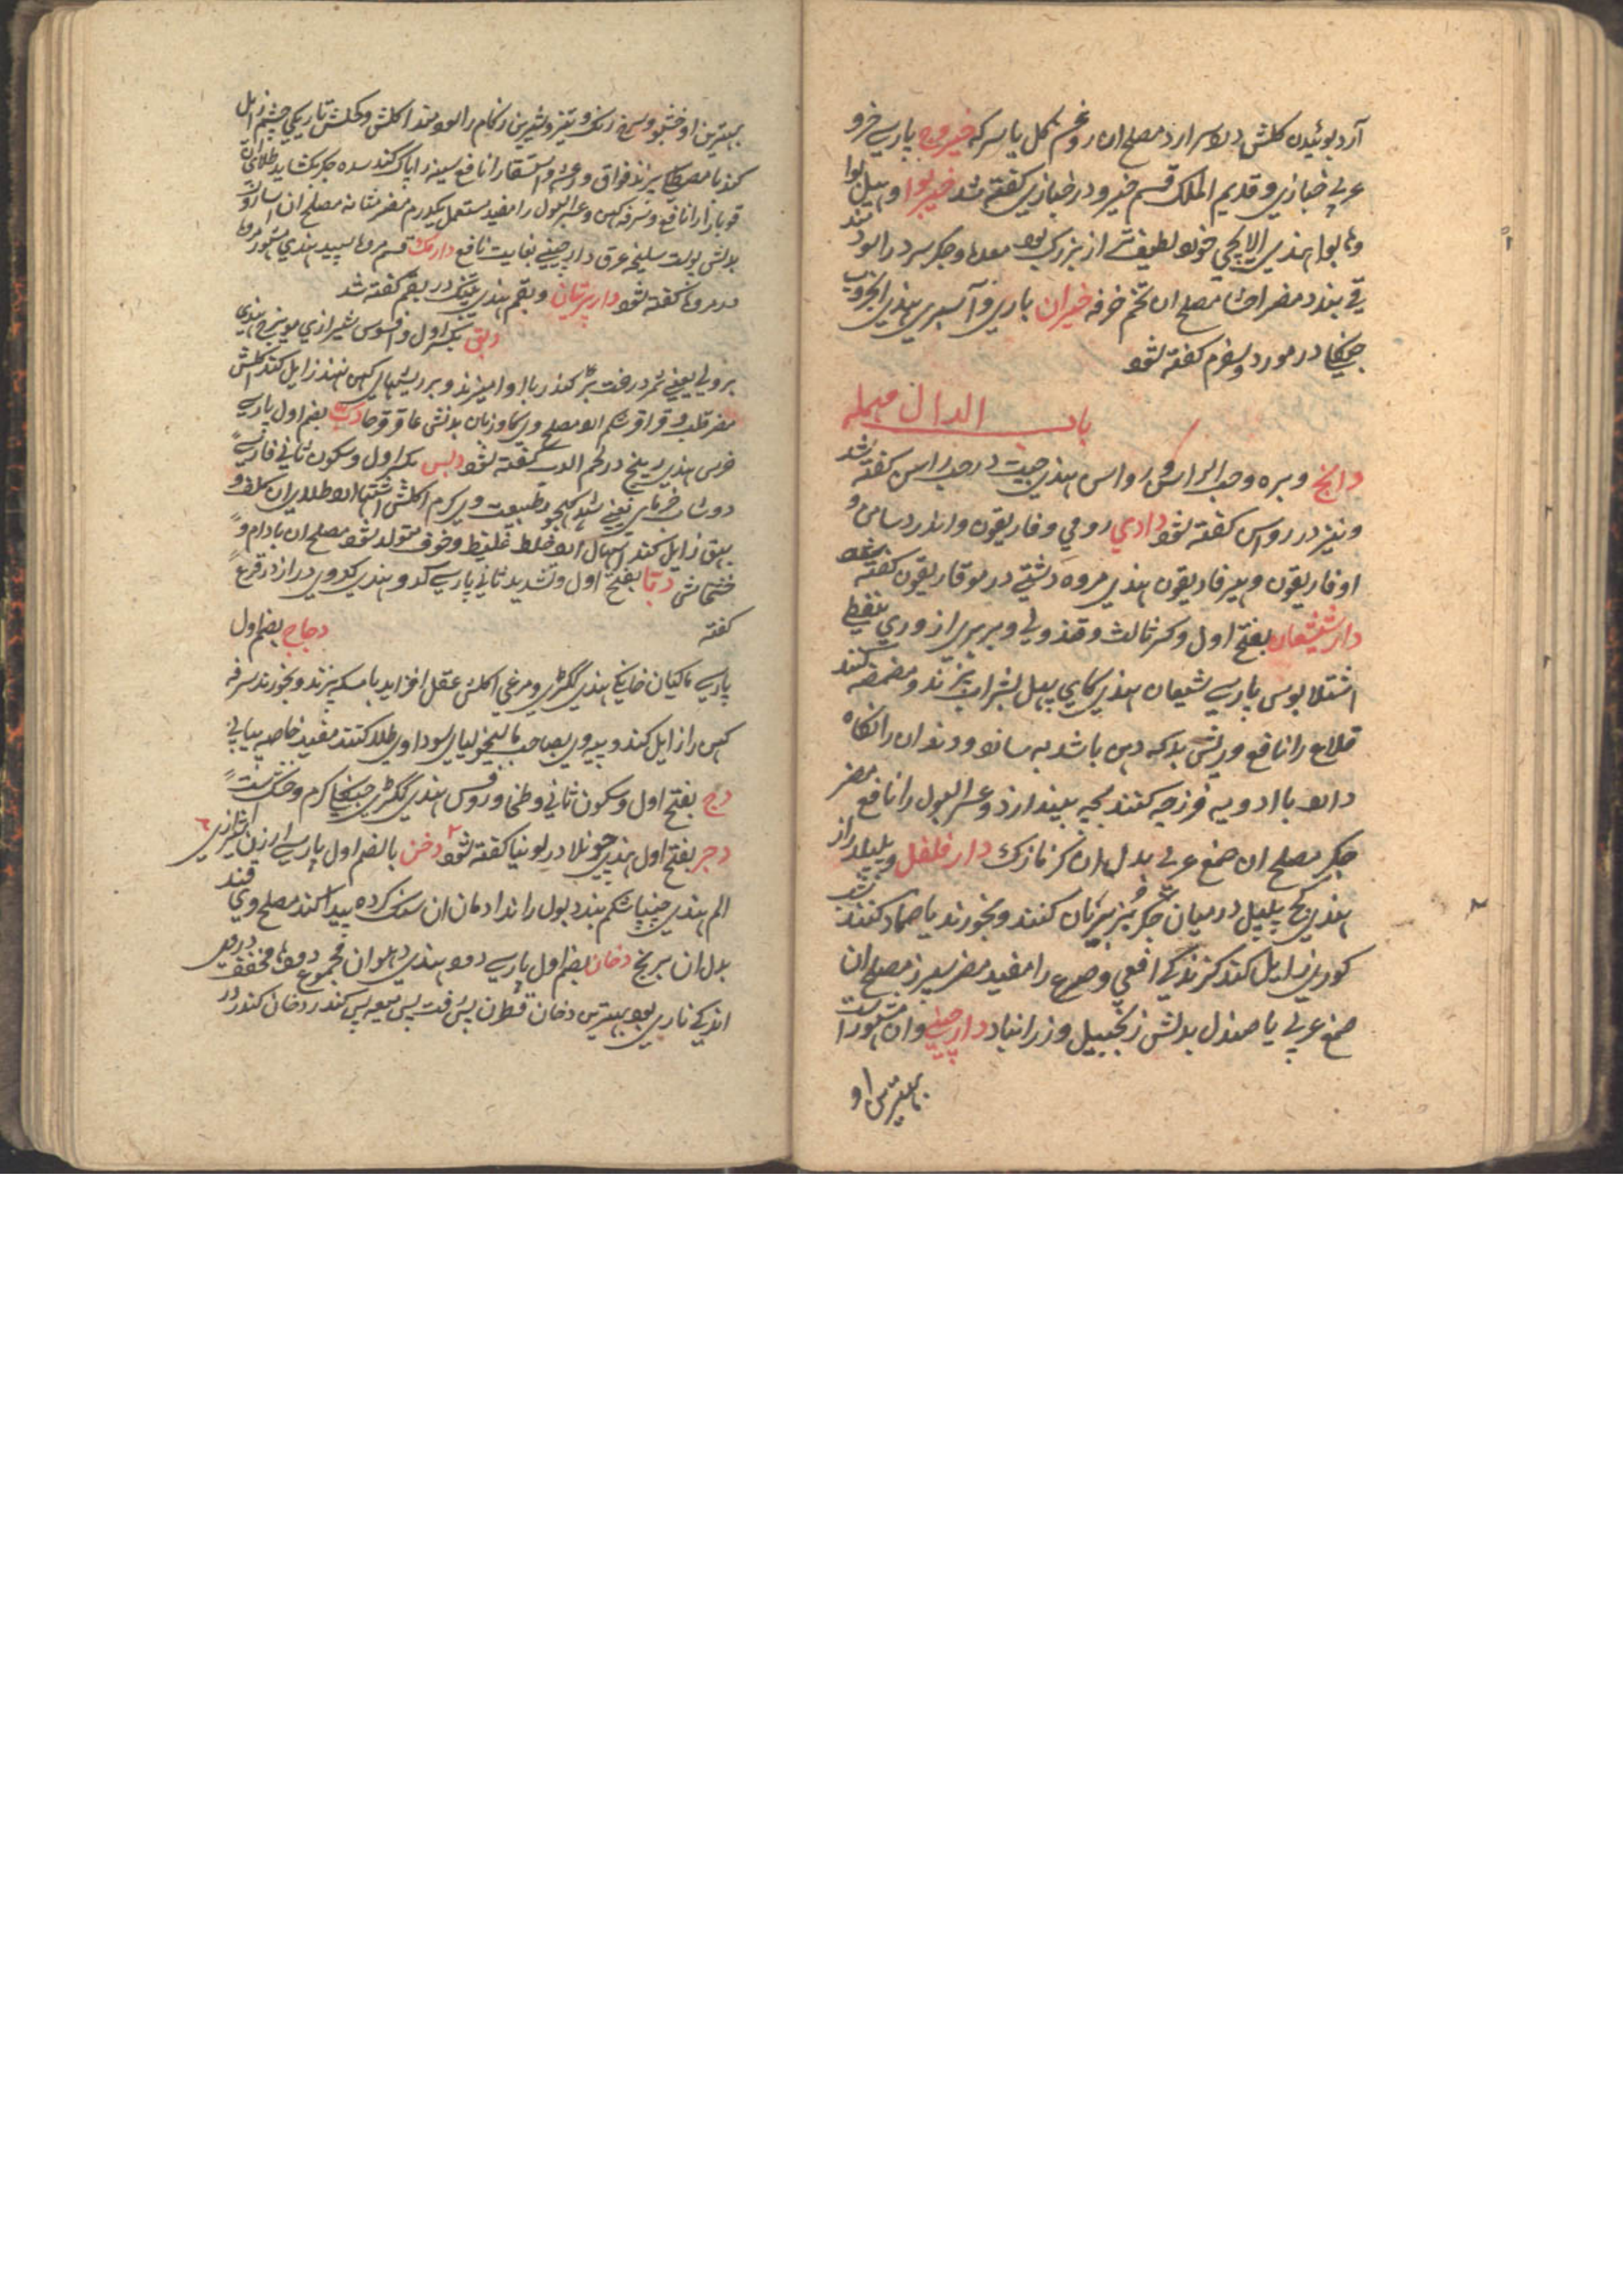 آرد بوئیدن کلش درد سر ارد مصلح ان روغن گل یا سرکه خیروج پارسے خرو
عربے خبازي و قدیم الملک قسم خیرو در خبازي کفته شد خیربوا و هیل بوا
و هابوا هندي الایچي خورد لطیف تر از بزرک بود معده و جکر سرد را سود مند
قے بندد مضر احشا مصلح ان تخم خرفه خیران پارسي
در مورد سفرم کفته شود
باب الدال مهمله
دابخ و بره وحب الراس و رواس هندي در حب راس کفته شد
و نیز در رواس کفته شود دادي رومي وفاریقون و اندروسامن و
اوفاریقون و هیرفاریقون هندي مروه دشتي در هوفاریقون کفته شود
دارشیشعان بفتح اول و کسر ثالث وقندولي و بربري ازوري نبطي
اشتلابوس پارسے شیعان هندي کایي پهل بشراب پزند و مضمضه کنند
قلاع را نافع وریش بدکه دهن باشد به سازد و دندان را نکاه
دارد با ادویه فرزجه کنند بچه بیندازد و عسر البول را نافع مضر
جکر مصلح ان صمغ عربے بدل ان کزمازک دارفلفل و پلپل دراز
هندي کچ پیپل درمیان جکر بز بریان کنند و بخورند یا ضماد کنند شب
کوري زایل کند کزندکي افعي و صرع را مفید مضر سرز مصلح ان
صمغ عربي یا صندل بدلش زنجبیل و زرانباد دارچینے وان مشهور است
بهترین او
بهترین او خشبو و سرخ رنک و تیز و شیرین زکام را سود مند اکلش وکحلش تاریکي چشم زایل
کند با مصطکي پزند فواق و رعشه و استسقا را نافع سینه را پاک کند سده جکر بکشاید طلاي ان
قوبا را نافع و سرفه کهن و عسر البول را مفید مستعمل یکدرم مضر مثانه مصلح ان اسارون
بدلش پوست سلیخه عرق دارچینے بغایت نافع دارمک قسم مروها سپید هندي مشهور مروا
در مروها کفته شود دارپرنیان و بقم هندي پتنک در بقم کفته شد
دبق بکسر اول و افسوس شیرازي مویزج هندي
برولي یعنے ثمر درخت بڑ کندر با او امیزند و بر ریشهاي کهن نهند زایل کند اکلش
مضر قلب و قراقر شکم ارد مصلح وي کاو زبان بدلش عاقرقرحا دب بضم اول پارسے
خرس هندي ریچ در لحم الدب کفته شود دبس بکسر اول و سکون ثاني فارسے
دوشاب خرمایي یعنے شهد کهجور طبیعت وي کرم اکلش اشتها ارد طلا یران کلف و
بهق زایل کند اسهال ارد خلط غلیظ و خون متولد شود مصلح ان بادام و
خشخاش دبا بفتح اول و تشدید ثاني پارسے کدو هندي کدوي دراز در قرع
کفته دجاج بضم اول
پارسے ماکیان خانکي هندي ککڑي و مرغي اکلش عقل افزاید با سکه پزند و بخورند سرفه
کهن را زایل کند و پیه وي بصاحب مالیخولیاي سوداوي طلا کنند مفید خاصه پیاپي
دج بفتح اول و سکون ثاني هندي ککڑي کرم و خشکست
دجر بفتح اول هندي چونلا در لوبیا کفته شود دخن بالضم اول پارسے ارزن شیرازي
الم هندي چینا شکم بندد بول را راند ادمان ان سنک کرده پیدا کند مصلح وي قند
بدل ان برنج دخان بضم اول پارسے دود هندي دهوان مجموع دودها مجفف در وي
اندکے ناري بود بهترین دخان قطران پس زفت پس میعه پس کندر دخان کندر در